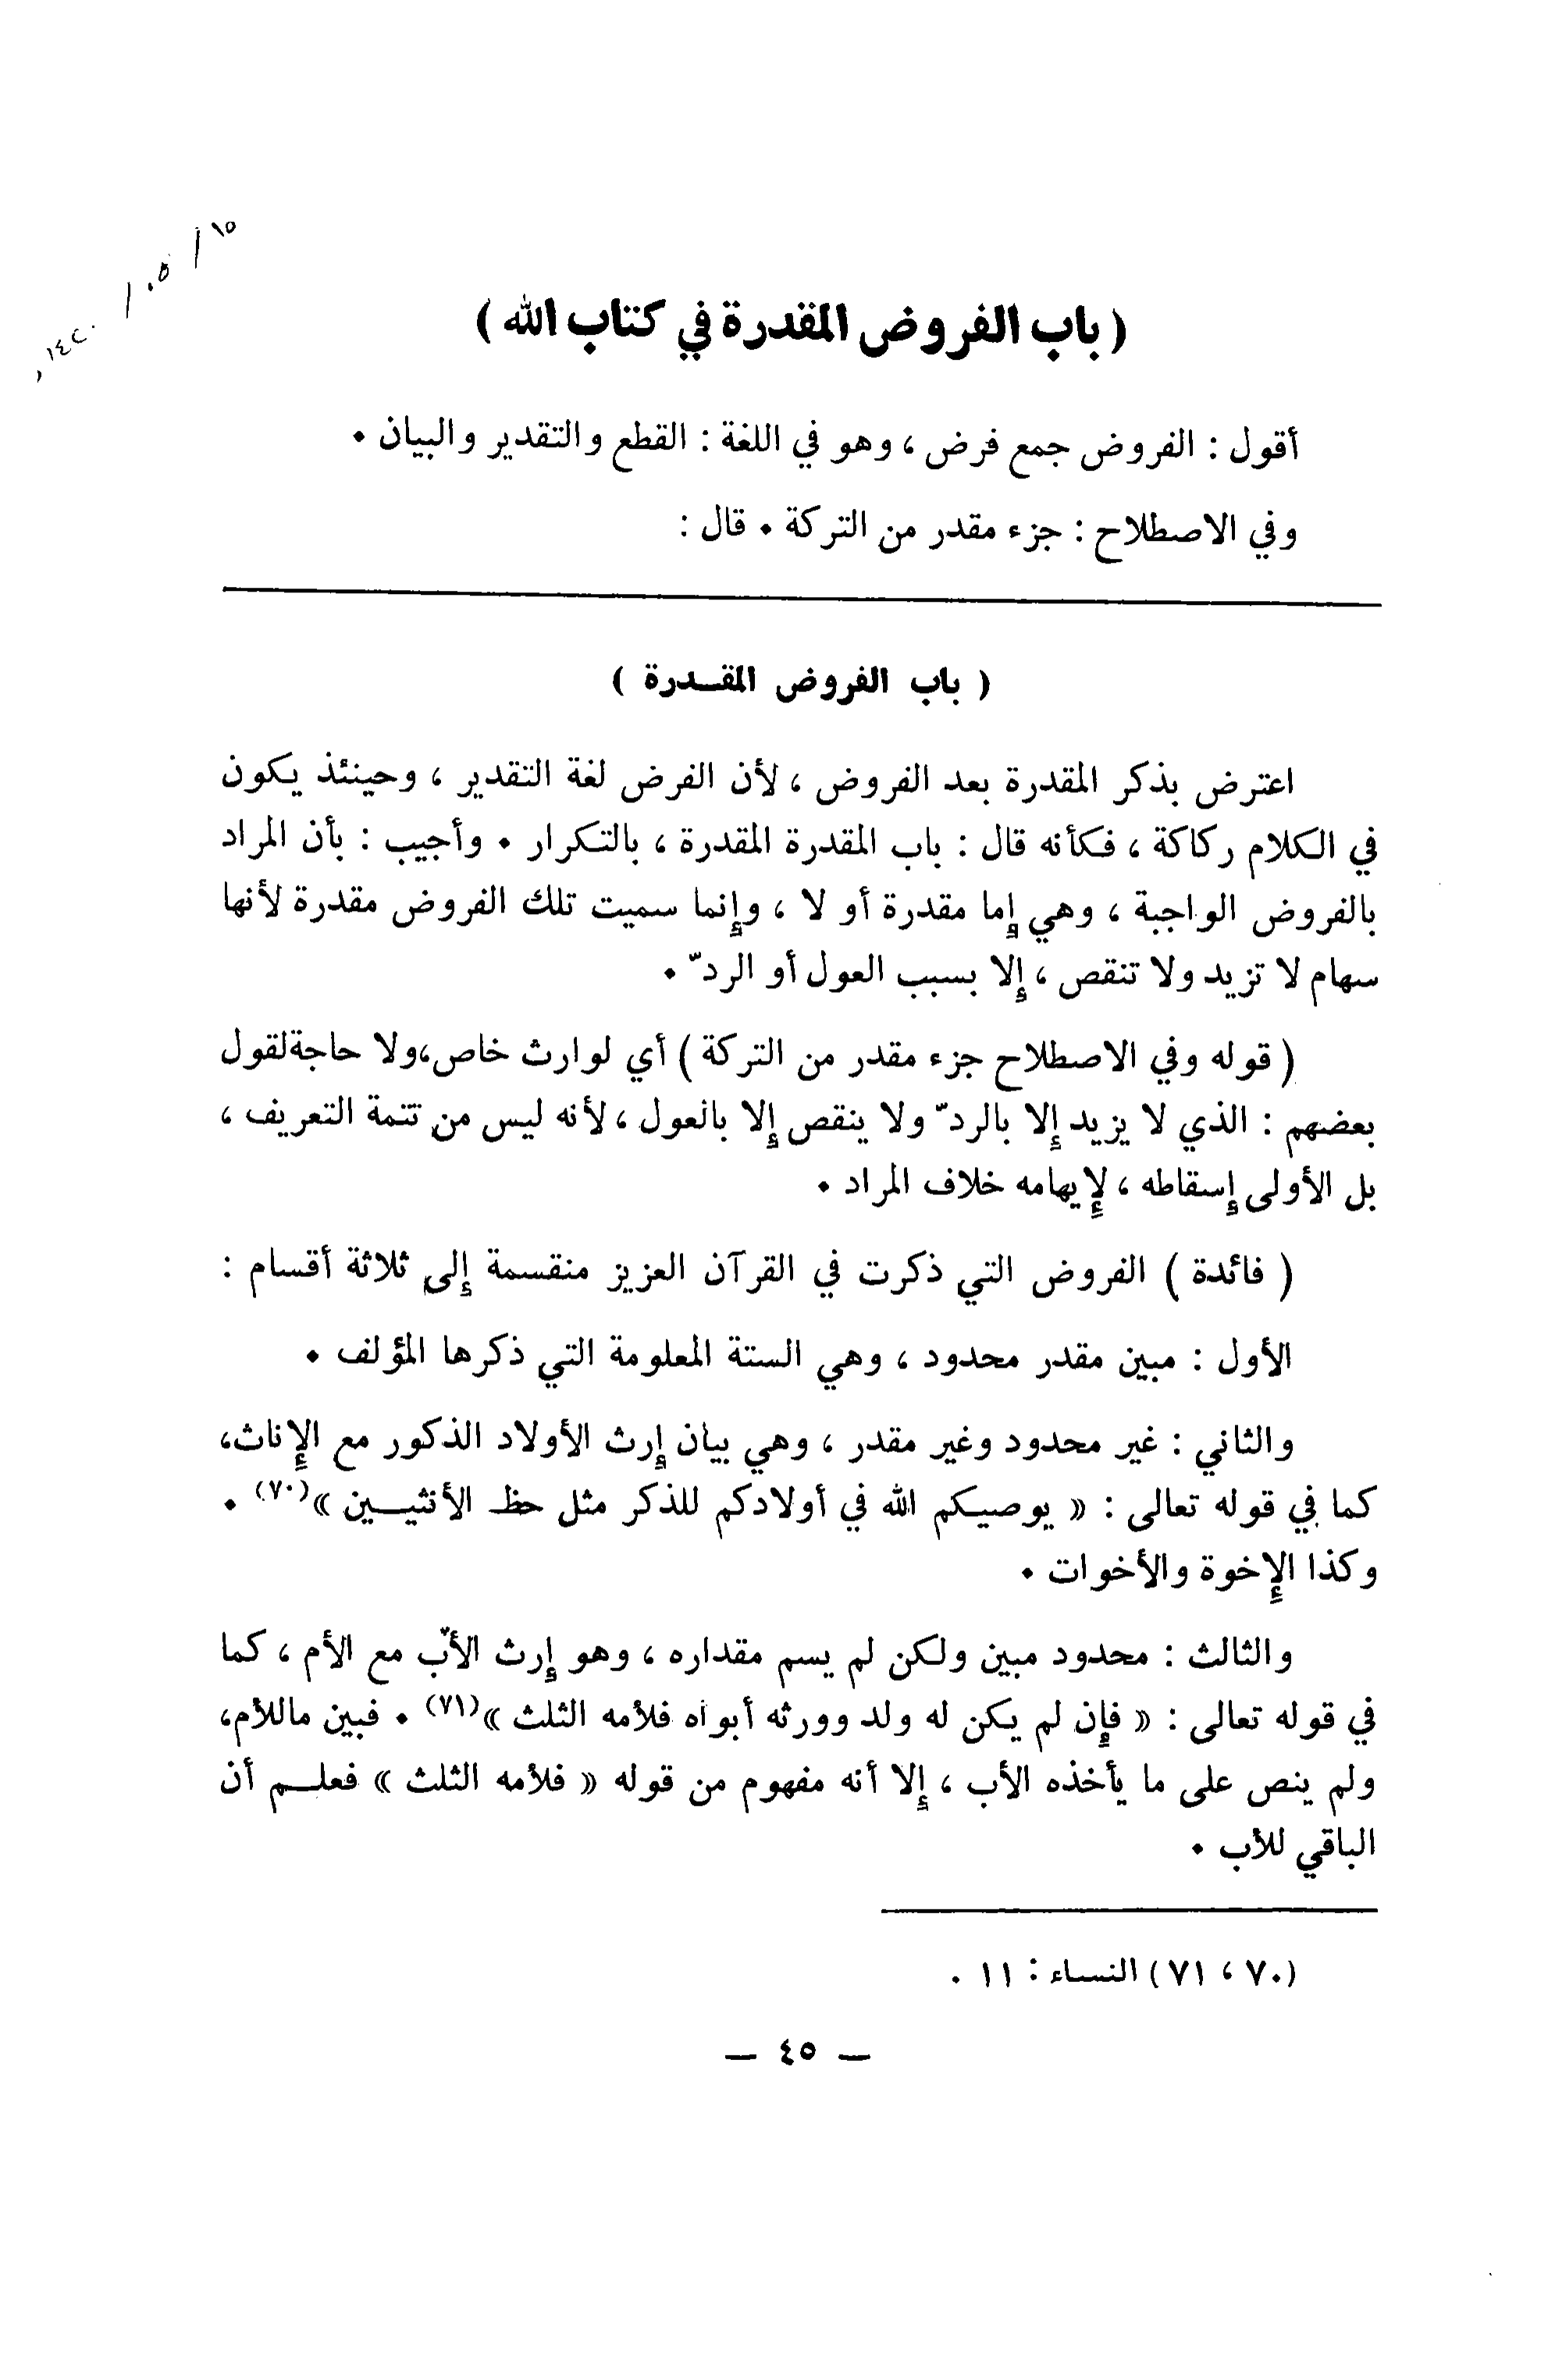 ١٥ / ٠٥ / ١٤٢٠
( باب الفروض المقدرة في كتاب الله )
أقول : الفروض جمع فرض ، وهو في اللغة : القطع والتقدير والبيان .
وفي الاصطلاح : جزء مقدر من التركة . قال :
( باب الفروض المقـدرة )
اعترض بذكر المقدرة بعد الفروض ، لأن الفرض لغة التقدير ، وحينئذ يكون
في الكلام ركاكة ، فكأنه قال : باب المقدرة المقدرة ، بالتكرار . وأجيب : بأن المراد
بالفروض الواجبة ، وهي إما مقدرة أو لا ، وإنما سميت تلك الفروض مقدرة لأنها
سهام لا تزيد ولا تنقص ، إلا بسبب العول أو الردّ .
( قوله وفي الاصطلاح جزء مقدر من التركة ) أي لوارث خاص،ولا حاجةلقول
بعضهم : الذي لا يزيد إلا بالردّ ولا ينقص إلا بالعول ، لأنه ليس من تتمة التعريف ،
بل الأولى إسقاطه ، لإيهامه خلاف المراد .
( فائدة ) الفروض التي ذكرت في القرآن العزيز منقسمة إلى ثلاثة أقسام :
الأول : مبين مقدر محدود ، وهي الستة المعلومة التي ذكرها المؤلف .
والثاني : غير محدود وغير مقدر ، وهي بيان إرث الأولاد الذكور مع الإناث،
كما في قوله تعالى : « يوصيكم الله في أولادكم للذكر مثل حظ الأنثيـين »(٧٠) .
وكذا الإخوة والأخوات .
والثالث : محدود مبين ولكن لم يسم مقداره ، وهو إرث الأبّ مع الأم ، كما
في قوله تعالى : « فإن لم يكن له ولد وورثه أبواه فلأمه الثلث »(٧١) . فبين ماللأم،
ولم ينص على ما يأخذه الأب ، إلا أنه مفهوم من قوله « فلأمه الثلث » فعلـم أن
الباقي للأب .
(٧٠ ، ٧١) النساء : ١١ .
— ٤٥ —